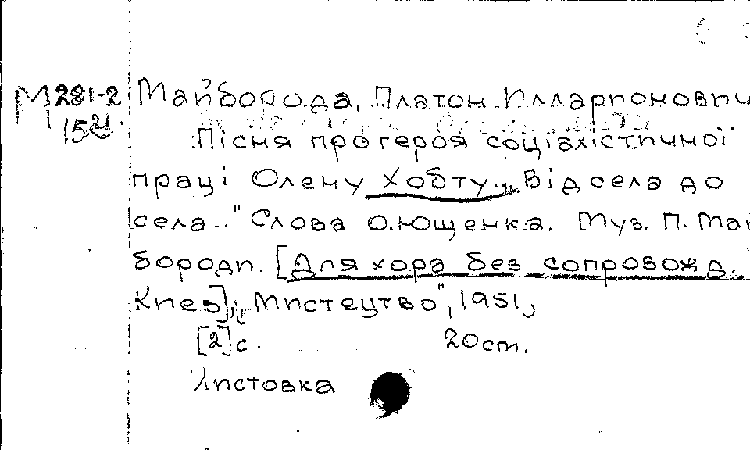 М 281-2 Майборода, Платон Илларионович
15 Пісня про героя соціалістичної
праці Олену Хобту „Від села до
села.." Слова О.Ющенка. Муз. П. Май
бороди. [Для хора без сопровожд.
Киев], „Мистецтво", 1951,
[2]с. 20 см.
Листовка